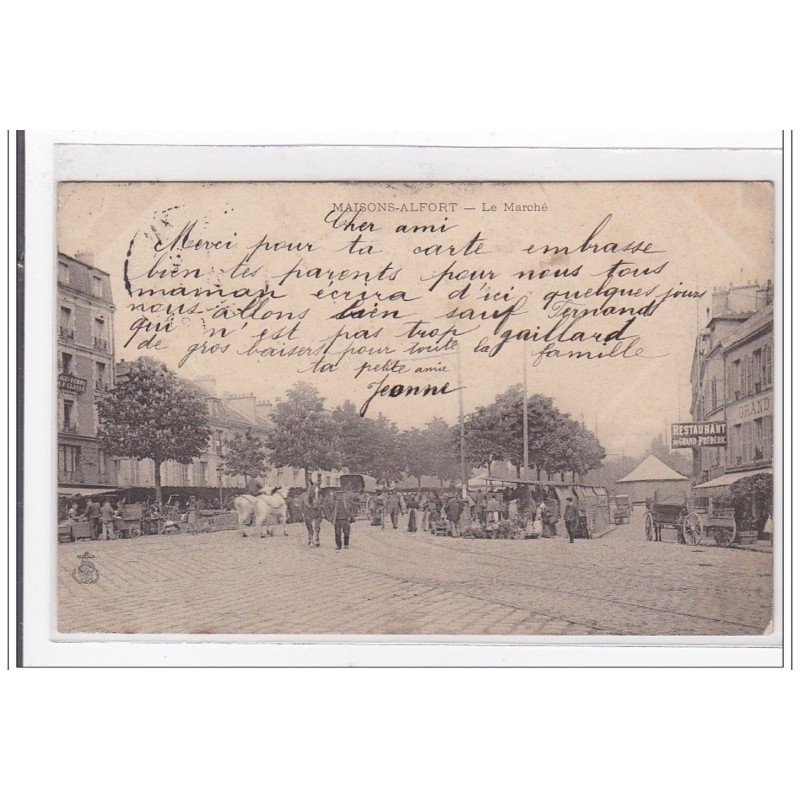 MAISONS-ALFORT — Le Marché
Cher ami
Merci pour ta carte embrasse
bien tes parents pour nous tous
maman écrira d'ici quelques jours
nous allons bien sauf Fernand
qui n'est pas trop gaillard
de gros baisers pour toute la famille
ta petite amie
Jeanne
GRAND
RESTAURANT
DU GRAND FRÉDÉRIC